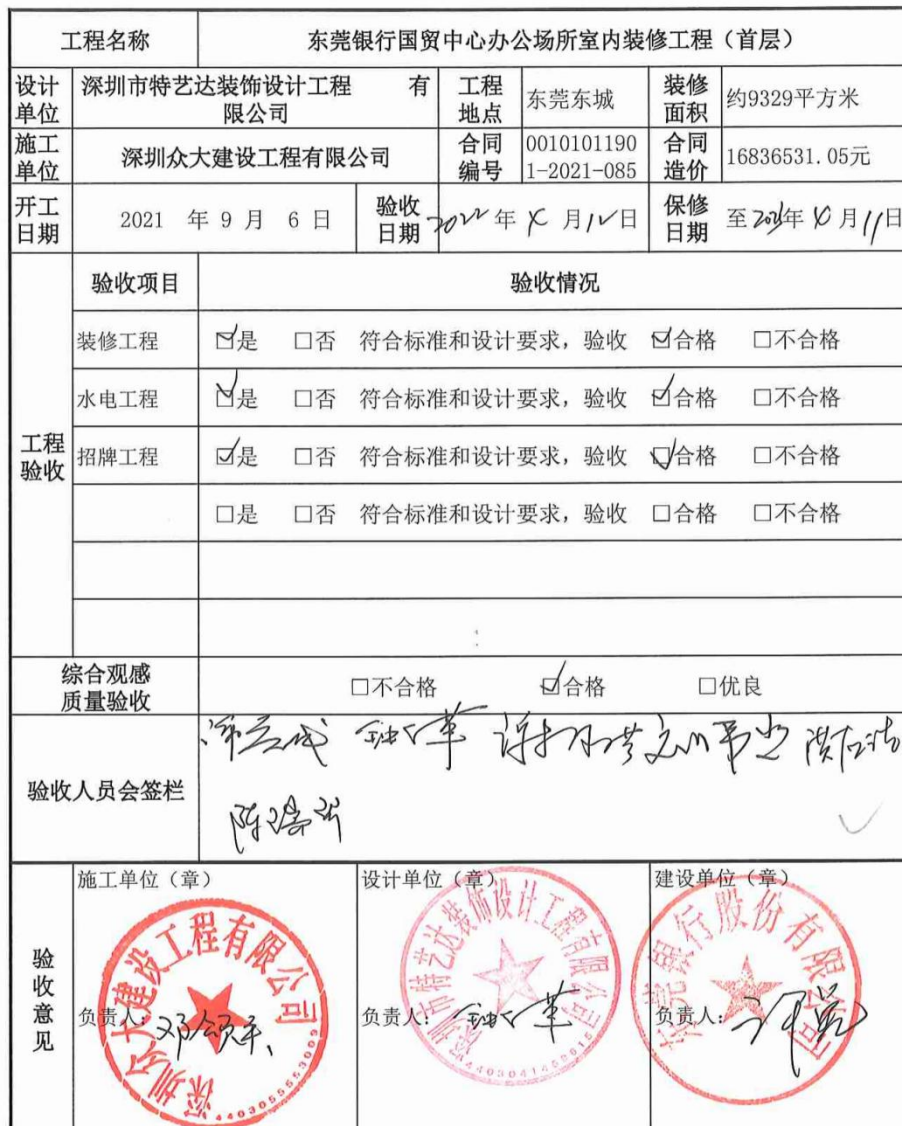 工程名称 东莞银行国贸中心办公场所室内装修工程（首层）
设计单位 深圳市特艺达装饰设计工程 有限公司 工程地点 东莞东城 装修面积 约9329平方米
施工单位 深圳众大建设工程有限公司 合同编号 00101011901-2021-085 合同造价 16836531.05元
开工日期 2021 年 9 月 6 日 验收日期 2022 年 月 12 日 保修日期 至 年 月 11 日
验收项目 验收情况
工程验收
装修工程 ☑是 □否 符合标准和设计要求，验收 ☑合格 □不合格
水电工程 ☑是 □否 符合标准和设计要求，验收 ☑合格 □不合格
招牌工程 ☑是 □否 符合标准和设计要求，验收 ☑合格 □不合格
□是 □否 符合标准和设计要求，验收 □合格 □不合格
综合观感质量验收 □不合格 ☑合格 □优良
验收人员会签栏
验收意见
施工单位（章） 设计单位（章） 建设单位（章）
负责人： 负责人： 负责人：
深圳众大建设工程有限公司
4403055553009
深圳市特艺达装饰设计工程有限公司
东莞银行股份有限公司